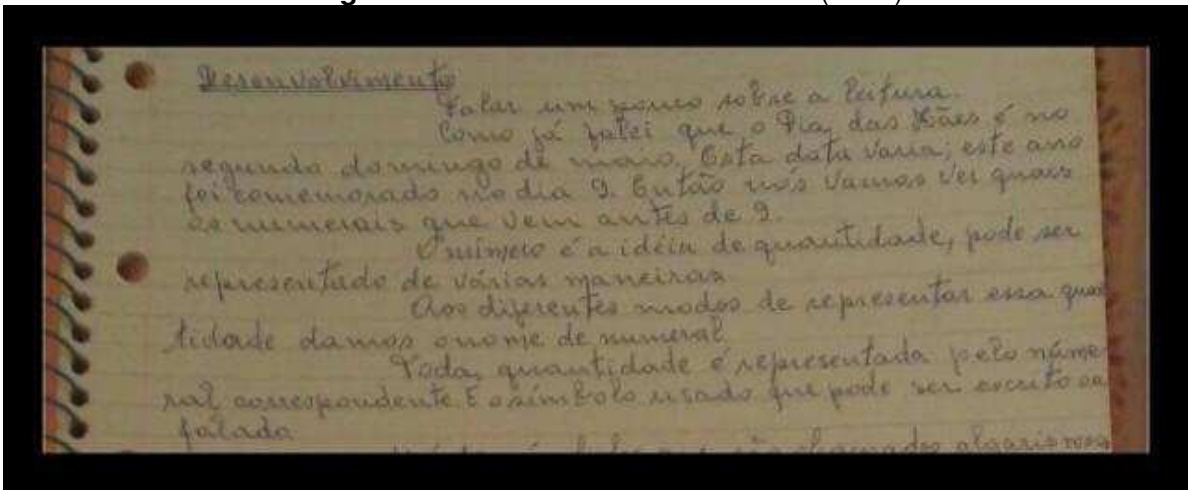 Desenvolvimento
Falar um pouco sobre a leitura.
Como já falei que o Dia das Mães é no
segundo domingo de maio. Esta data varia; este ano
foi comemorado no dia 9. Então nós vamos ver quais
os numerais que vem antes de 9.
O número é a idéia de quantidade, pode ser
representado de várias maneiras
Aos diferentes modos de representar essa quan
tidade damos o nome de numeral.
Toda quantidade é representada pelo nume
ral correspondente. E o símbolo usado que pode ser escrito ou
falado
são chamados algarismos